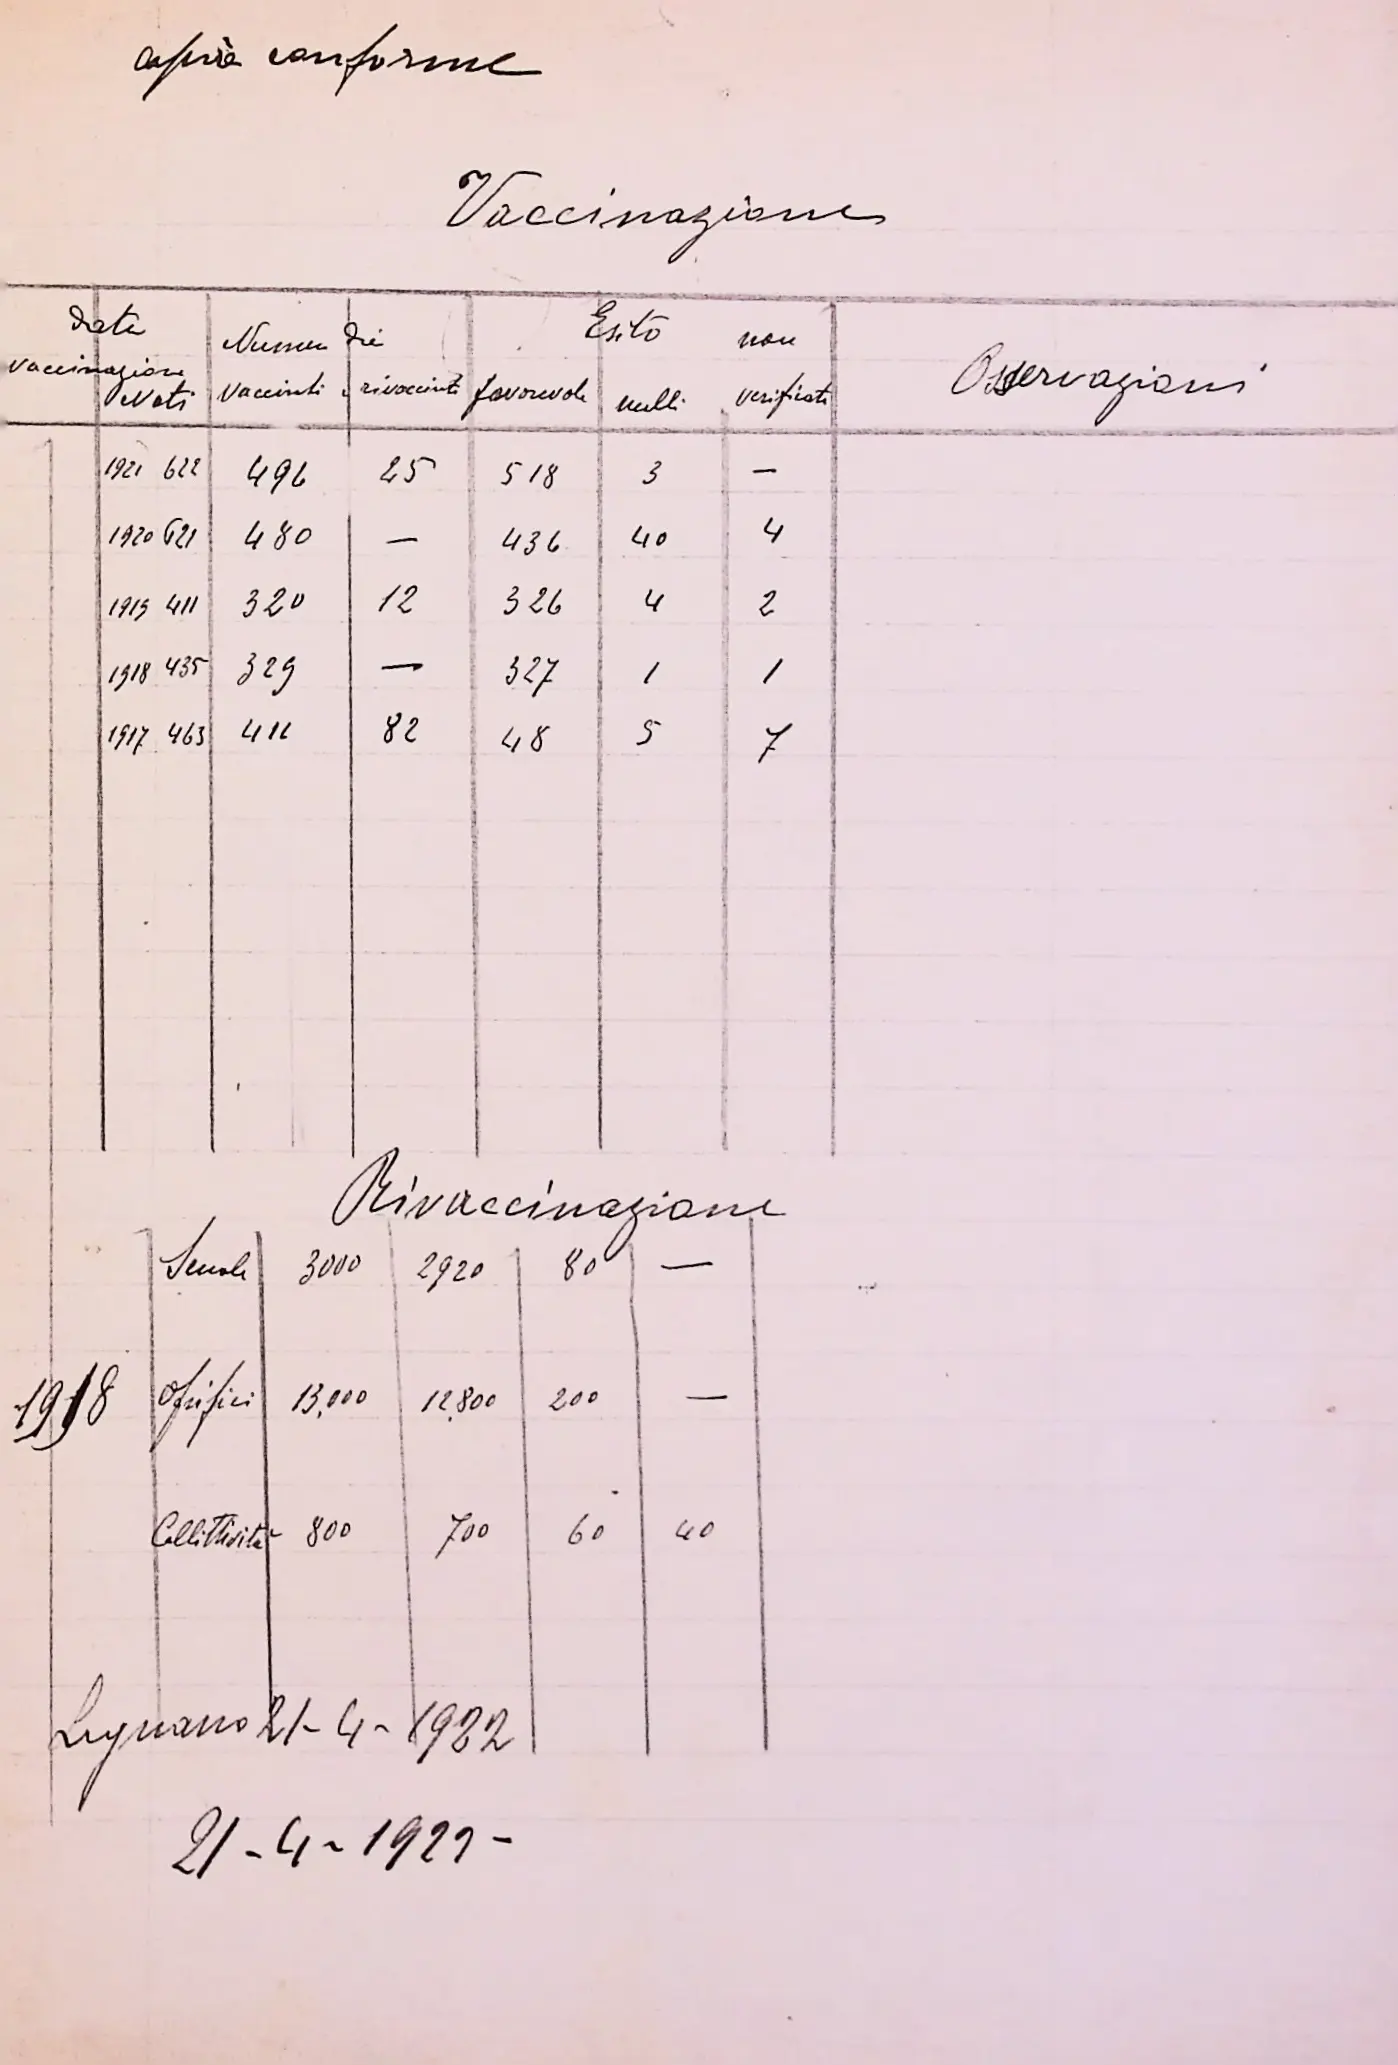 copia conforme
Vaccinazione
Data Numero di Esito non
vaccinazione Nati vaccinati rivaccinati favorevole nulli verificati Osservazioni
1921 622 496 25 518 3 —
1920 621 480 — 436 40 4
1919 411 320 12 326 4 2
1918 435 329 — 327 1 1
1917 463 82 48 5 7
Rivaccinazione
Scuole 3000 2920 80 —
1918 Opifici 13,000 12,800 200 —
Collettività 800 700 60 40
Legnano 21-4-1922
21-4-1922-